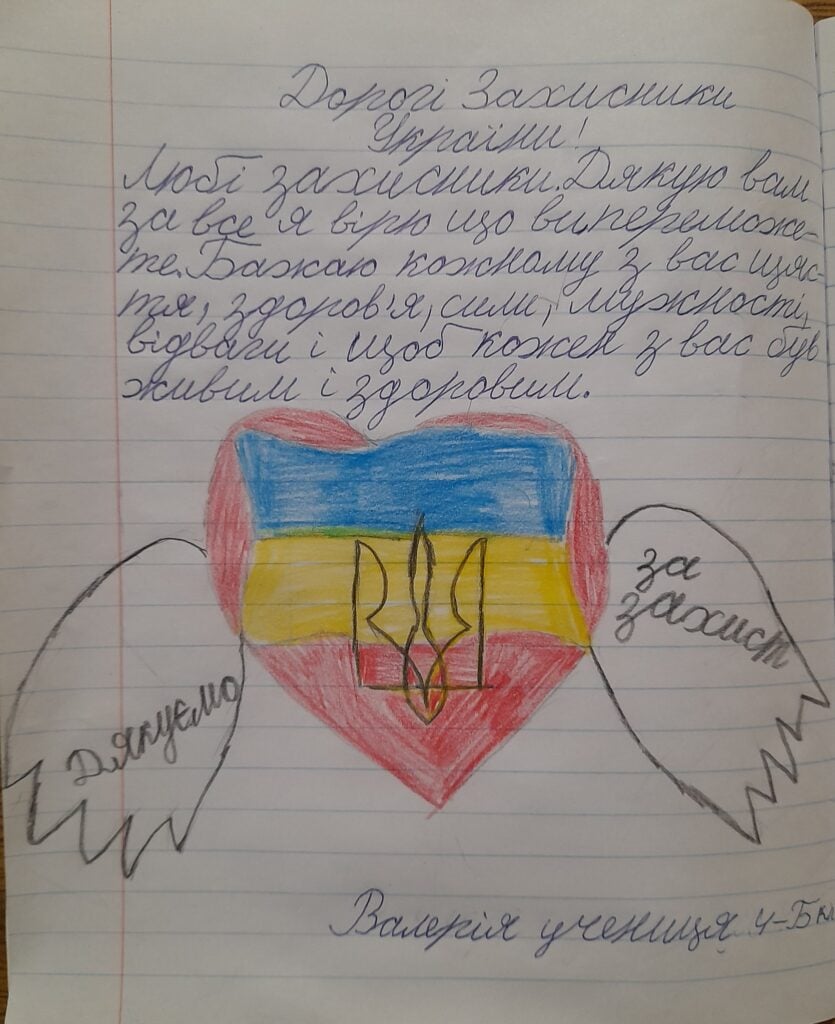 Дорогі Захисники
України!
Любі захисники. Дякую вам
за все я вірю що ви переможе-
те. Бажаю кожному з вас щяс-
тя, здоров'я, сили, мужності,
відваги і щоб кожен з вас був
живим і здоровим.
за
захист
Дякуємо
Валерія учениця 4-Б кл